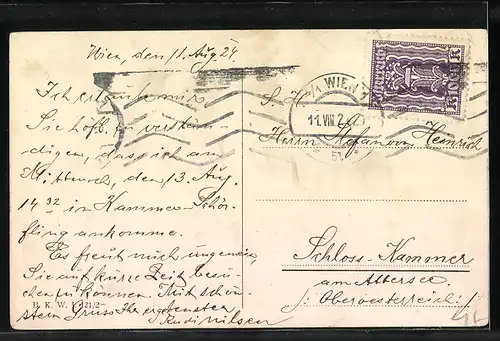 Wien, den 11. Aug 24.
Ich erlaube mir
Sie höfl. zu verstän-
digen, dass ich am
Mittwoch, den 13. Aug.
14 32 in Kammer-Schör-
fling ankomme.
Es freut mich ungemein
Sie auf kurze Zeit besu-
chen zu können. Mit schön-
stem Gruss Ihr ergebenster
Rudi
B. K. W. I. 421/2
WIEN
11. VIII. 2
S. H.
Herrn Stefanovic Heinrich
Schloss-Kammer
am Attersee.
/: Oberoesterreich :/